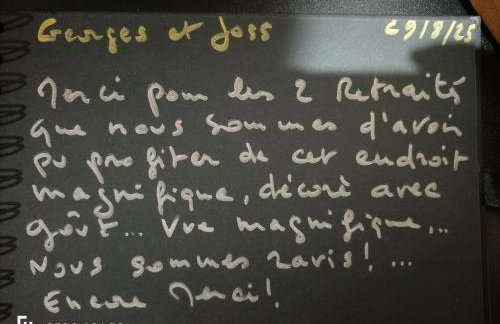 Georges et Joss 29/8/25
Merci pour les 2 Retraités
que nous sommes d'avoir
pu profiter de cet endroit
magnifique, décoré avec
goût... Vue magnifique...
Nous sommes ravis! ...
Encore Merci!